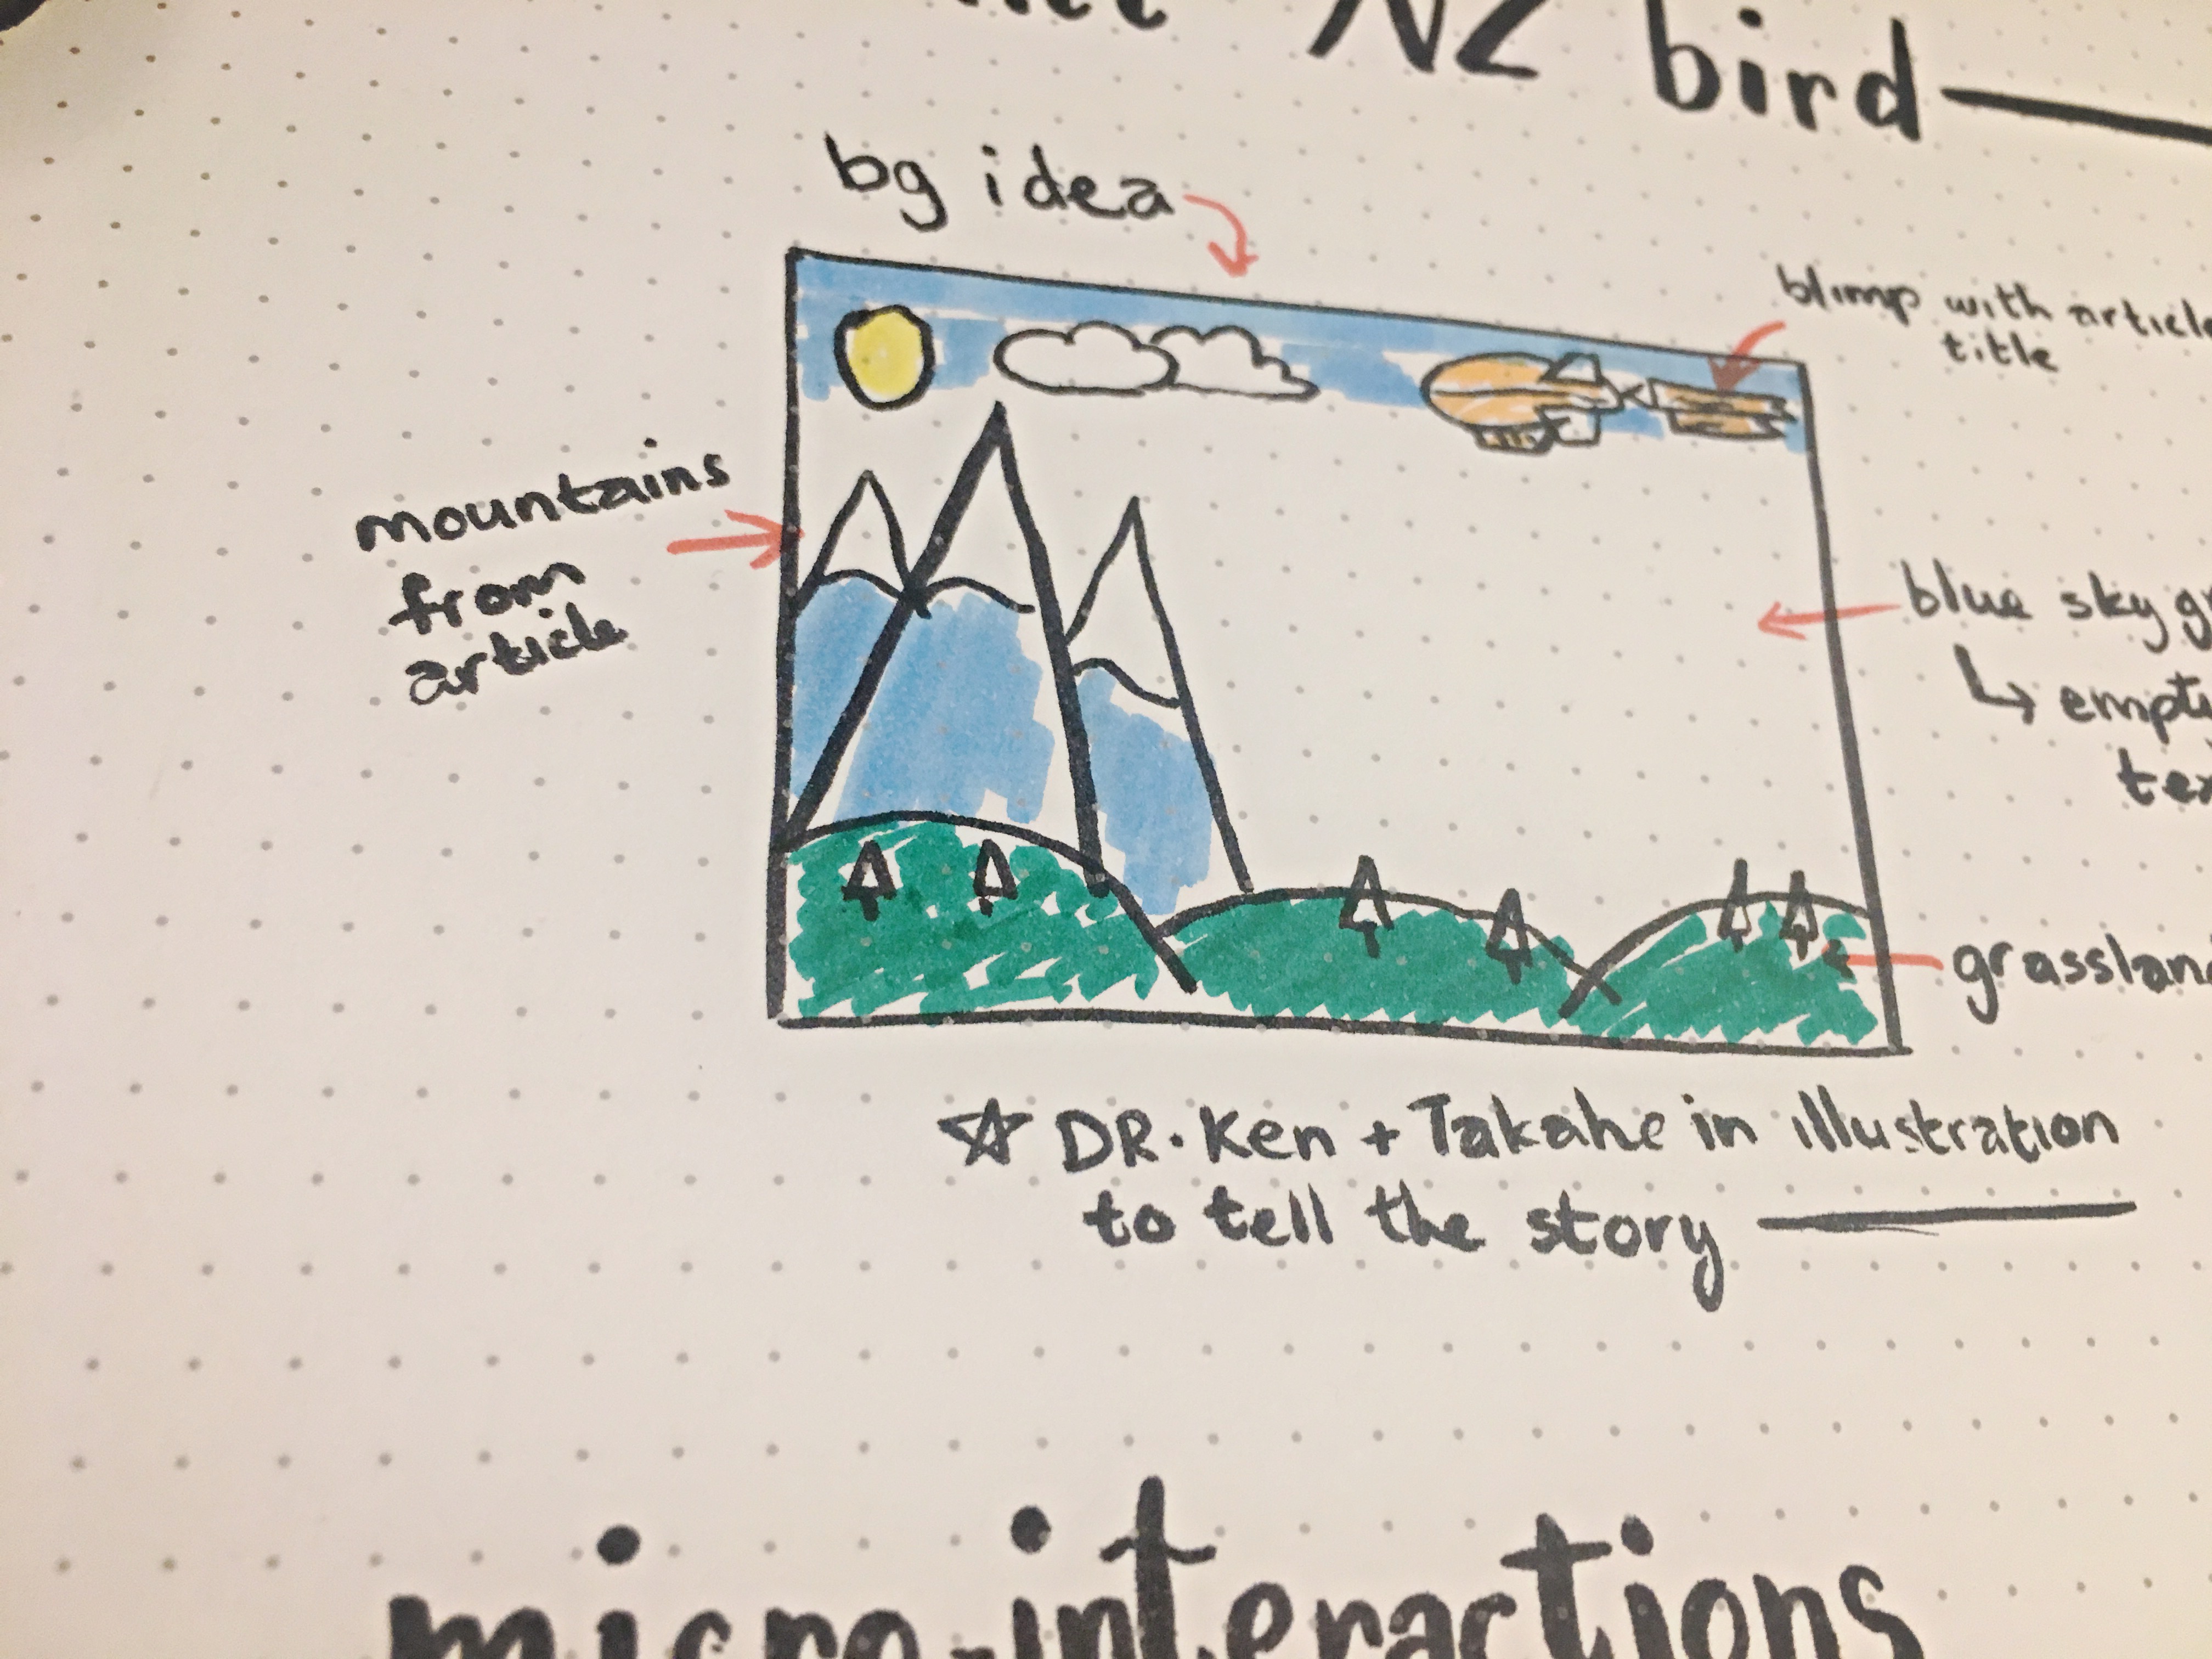 NZ bird
bg idea
blimp with article
title
mountains
from
article
blue sky
↳ empty
grassland
☆ DR. Ken + Takahe in illustration
to tell the story
micro-interactions